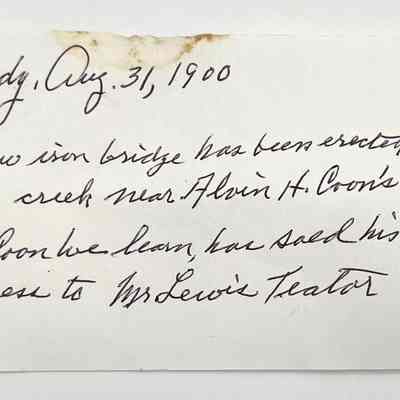 dy, Aug. 31, 1900
w iron bridge has been erected
creek near Alvin H. Coon's
Coon we learn, has sold his
ess to Mr Lewis Teator